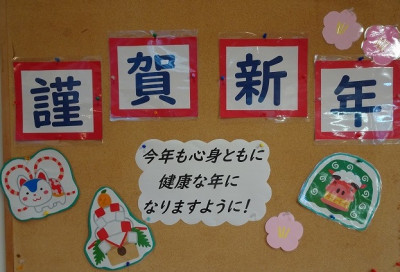 謹賀新年
今年も心身ともに
健康な年に
なりますように!